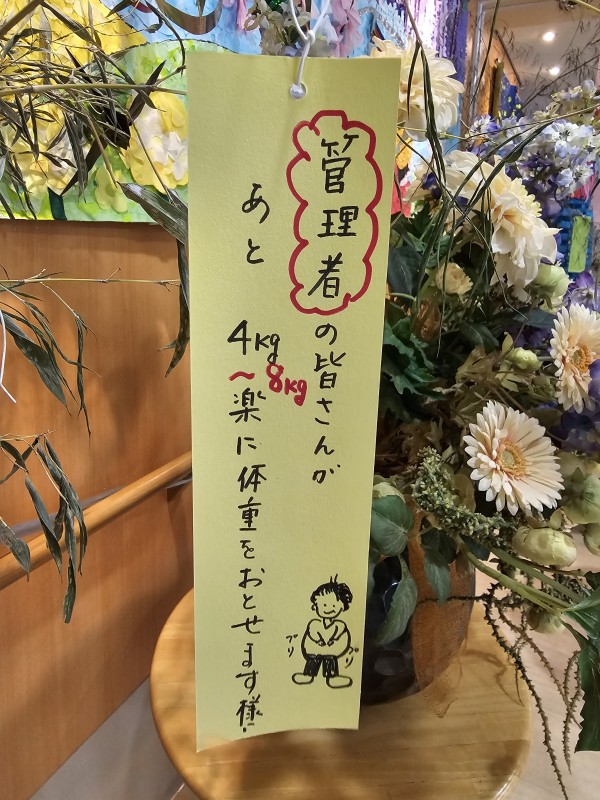 管理者の皆さんが
あと4kg～8kg楽に体重をおとせます様!
プリ
プリ